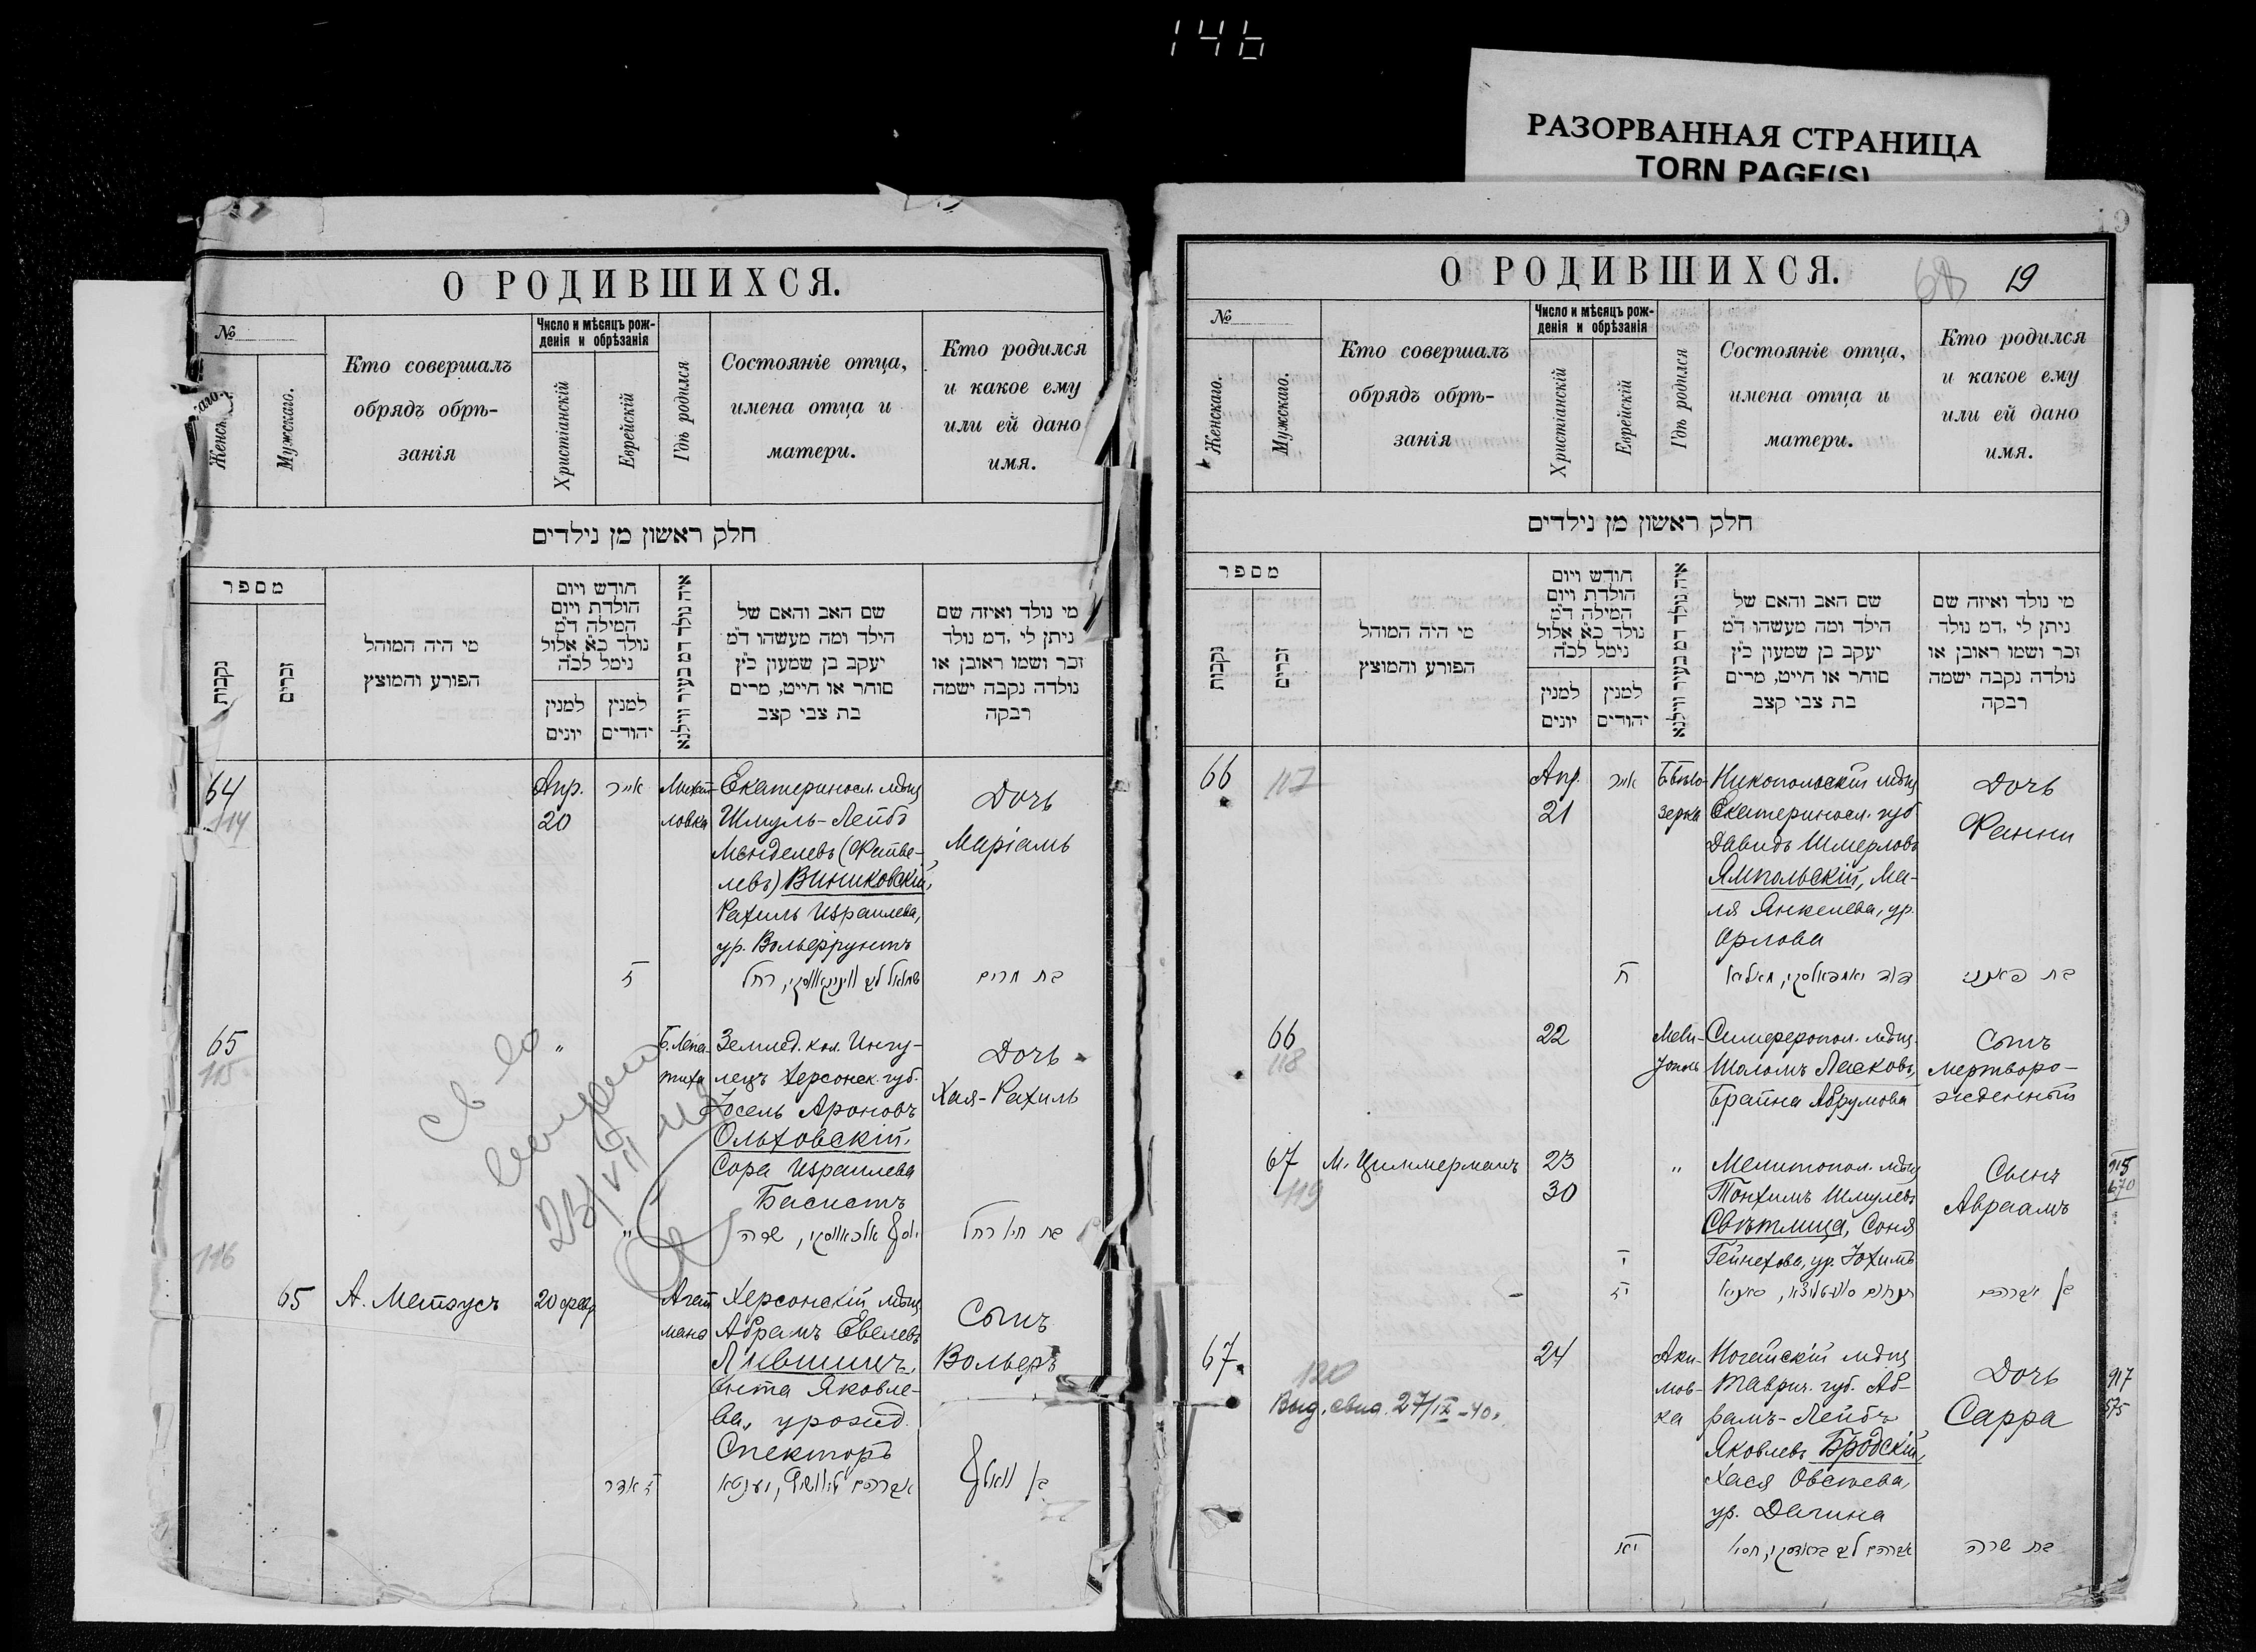 146
РАЗОРВАННАЯ СТРАНИЦА
TORN PAGE(S)
О РОДИВШИХСЯ.
№
Женскаго.
Мужскаго.
Кто совершалъ
обрядъ обрѣ-
занія
Число и мѣсяцъ рож-
денія и обрѣзанія
Христіанскій
Еврейскій
Гдѣ родился
Состояніе отца,
имена отца и
матери.
Кто родился
и какое ему
или ей дано
имя.
חלק ראשון מן נילדים
מספר
נקבות
זכרים
מי היה המוהל
הפורע והמוצץ
חודש ויום
הולדת ויום
המילה ד״מ
נולד כ״א אלול
נימל לכ״ה
למנין
יונים
למנין
יהודים
איה נולד דמ בעיר ווילנא
שם האב והאם של
הילד ומה מעשהו ד״מ
יעקב בן שמעון כ״ץ
סוחר או חייט, מרים
בת צבי קצב
מי נולד ואיזה שם
ניתן לי .דמ נולד
זכר ושמו ראובן או
נולדה נקבה ישמה
רבקה
64
114
Апр.
20
אייר
Михай-
ловка
Екатериносл. мѣщ
Шмуль-Лейбъ
Менделевъ (Файве-
левъ) Виниковскій,
Рахиль Израилева,
ур. Вольфрунтъ
Дочь
Маріамъ
ז
בת מרים
65
115
"
Б. Лепа-
тиха
Землед. кол. Ингу-
лецъ Херсонск. губ.
Іосель Ароновъ
Ольховскій,
Сора Израилева
Басистъ
Дочь
Хая-Рахиль
"
בת חי׳ רחל
св-во
23/VII
116
65
А. Матусъ
20 февр
Агай
мана
Херсонскій мѣщ
Абрамъ Евелевъ
Лившицъ,
Ента Яковле-
ва, урожд.
Спекторъ
Сынъ
Вольфъ
ז אדר
בן וואלף
О РОДИВШИХСЯ.
19
19
№
Женскаго.
Мужскаго.
Кто совершалъ
обрядъ обрѣ-
занія
Число и мѣсяцъ рож-
денія и обрѣзанія
Христіанскій
Еврейскій
Гдѣ родился
Состояніе отца,
имена отца и
матери.
Кто родился
и какое ему
или ей дано
имя.
חלק ראשון מן נילדים
מספר
נקבות
זכרים
מי היה המוהל
הפורע והמוצץ
חודש ויום
הולדת ויום
המילה ד״מ
נולד כ״א אלול
נימל לכ״ה
למנין
יונים
למנין
יהודים
איה נולד דמ בעיר ווילנא
שם האב והאם של
הילד ומה מעשהו ד״מ
יעקב בן שמעון כ״ץ
סוחר או חייט, מרים
בת צבי קצב
מי נולד ואיזה שם
ניתן לי .דמ נולד
זכר ושמו ראובן או
נולדה נקבה ישמה
רבקה
66
117
Апр.
21
אייר
Бѣло-
зерка
Никопольскій мѣщ
Екатериносл. губ
Давидъ Шмерловъ
Ямпольскій, Ма-
ля Янкелева, ур.
Орлова
Дочь
Фанни
ח
דוד יאמפאלסקי, מאליא
בת פאנני
66
118
22
Мели-
тополь
Симферопол. мѣщ.
Шоломъ Исаковъ,
Брайна Абрумова
Сынъ
мертворо-
жденный
67
119
М. Циммерманъ
23
30
"
Мелитопол. мѣщ
Танхимъ Шмулевъ
Свѣтлица, Соня
Гейнехова, ур. Іохимъ
Сынъ
Авраамъ
915
670
י
יז
בן אברהם
67
120
Выд. свид. 27/IX-40.
24
Аки-
мов-
ка
Ногайскій мѣщ
Таврич. губ. Аб-
рамъ-Лейбъ
Яковлевъ Бродскій,
Хася Овсеева,
ур. Дагина
Дочь
Сарра
917
575
יא
בת שרה